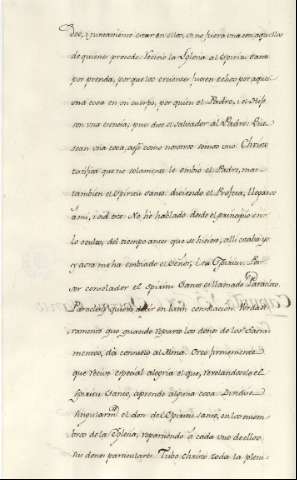 Dos, y juntamente estar en ellos, si no fuera una con aquellos
de quienes procede. Tenno la Iglesia al Espiritu Santo
por prenda, porque los creientes fuesen echos por aqui
una cosa en un cuerpo, por quien el Padre, i el Hijo
son una esencia; pues dice el salvador al Padre: Que
sean una cosa, assi como nosotros somos uno. Christo
testifica que no solamente le embió el Padre, mas
tambien el Spiritu santo: diciendo el Profeta, llegaos
á mi, i oid esto. No hé hablado desde el principio en
lo oculto, del tiempo antes que se hiciera, alli estaba yo
y aora me ha embiado el Señor, i su Spiritu. Por
ser consolador el Spiritu Santo es llamado Paracleto
Paraclesis quiere decir en latin consolacion. Verdade-
ramente que quando reparte los dones de los Sacra-
mentos, dá consuelo al Alma. Creo firmemente
que recive especial alegria el que, revelandoselo el
Spiritu Santo, aprende alguna cosa. Dividese
singularm.te el don del Spiritu santo, en los miem-
bros de la Iglesia, repartiendo á cada uno de ellos,
sus dones particulares. Tubo Christo toda la pleni-